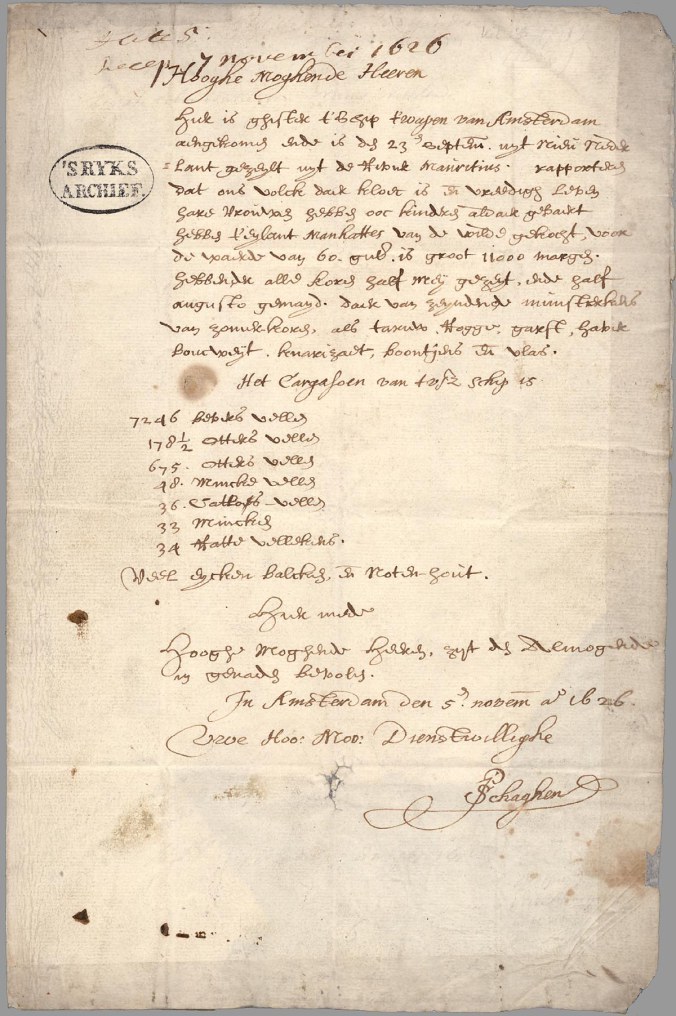 7 november 1626
Hooghe Moghende Heeren
Hier is ghister t'Schip t'wapen van Amsterdam
aengekomen ende is den 23en septem. uyt Nieu Neder
'SRYKS
ARCHIEF.
lant gezeylt uyt de Rivier Mauritius. rapporteren
dat ons volck daer kloec is en vreedigh leven
hare vrouwen hebben ooc kinderen aldaer gebaert
hebben t'eylant Manhattes van de wilde gekocht, voor
de waerde van 60. gul. is groot 11000 morgen.
hebbende alle koren half mey gezeyt, ende half
augusto gemayd. daer van zeyndende munsterkens
van zomerkoren, als taruw, Rogge, garst, haver
boucweyt, knarizaet, boontjens en vlas.
Het Cargasoen van tvsz schip is
7246 bevers vellen
178½ otters vellen
675. otters vellen
48. Mincke vellen
36. Catloes vellen
33 Mincken
34 Ratte vellekens.
Veel eycken balcken, en Noten-hout.
Hier mede
Hooghe Moghende Heeren, zijt den Almogende
in genaden bevolen.
In Amsterdam den 5en novem ao 1626.
Uwe Hoo: Moo: Dienstwillighe
P Schaghen